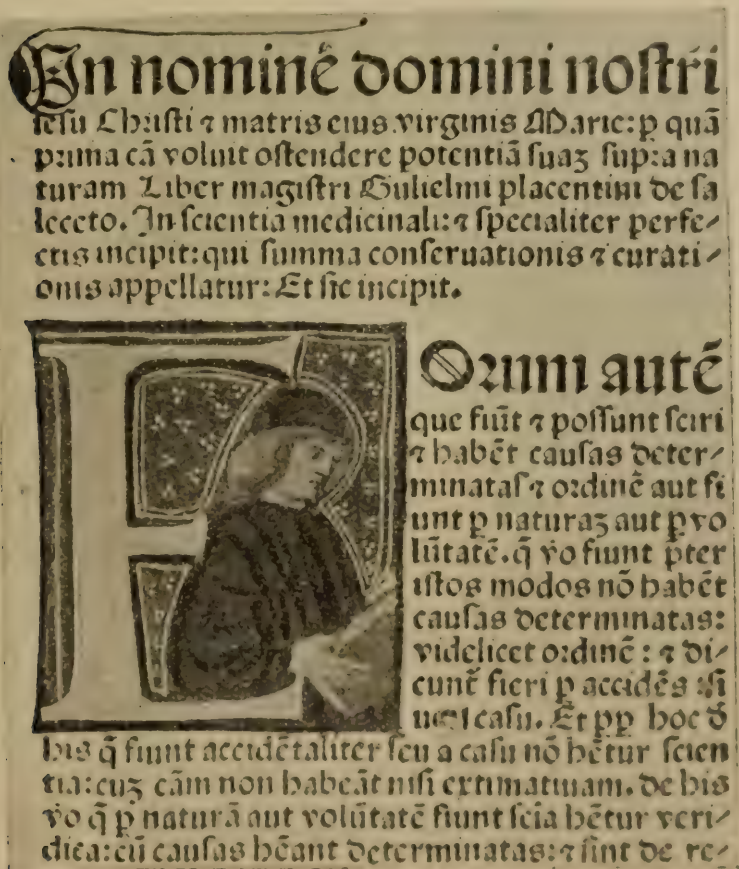 In nominē domini noſtri
ieſu Chriſti ⁊ matris eius virginis Marie: p quā
prima cā voluit oſtendere potentiā ſuaꝫ ſupra na
turam Liber magiſtri Gulielmi placentini de ſa
leceto. In ſcientia medicinali: ⁊ ſpecialiter perfe-
ctis incipit: qui ſumma conſeruationis ⁊ curati-
onis appellatur: Et ſic incipit.
EOrum autē
que fiūt ⁊ poſſunt ſciri
⁊ habēt cauſas deter-
minataſ ⁊ ordinē aut fi
unt p naturaꝫ aut p vo
lūtatē. q̄ vo fiunt p̄ter
iſtos modos nō habēt
cauſas determinatas:
videlicet ordinē: ⁊ di-
cunt̄ fieri p accidēs :ſi
ue a caſu. Et pp hoc d̄
his q̄ fiunt accidētaliter ſeu a caſu nō hētur ſcien
tia: cuꝫ cām non habeāt niſi extimatiuam. de his
vo q̄ p naturā aut volūtatē fiunt ſcīa hētur veri-
dica: cū cauſas hēant determinatas: ⁊ ſint de re-